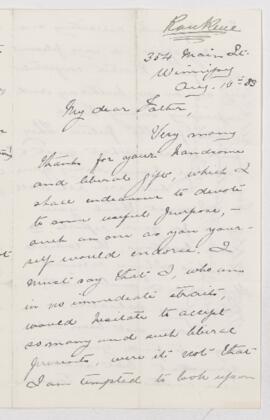 354 Main St.
Winnipeg
Aug. 10th 83
My dear Father,
Very many
thanks for your handsome
and liberal gift, which I
shall endeavour to devote
to some useful purpose, -
such an one as you your-
self would endorse. I
must say that I, who am
in no immediate straits,
would hesitate to accept
so many and such liberal
presents, were it not that
I am tempted to look upon